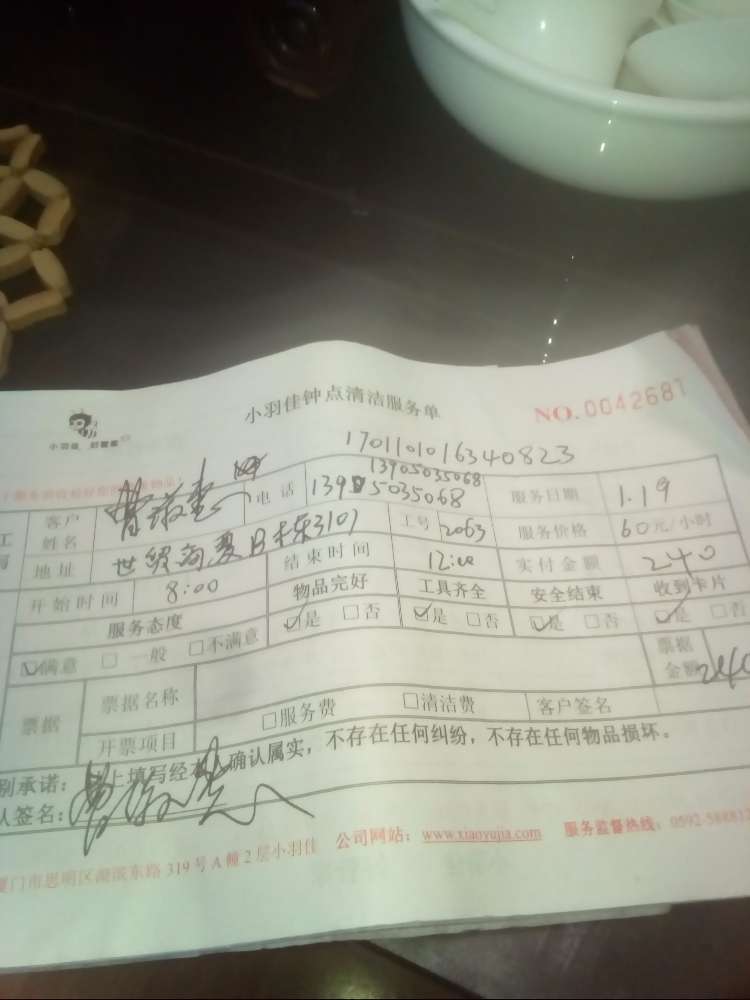 小羽佳钟点清洁服务单
NO.0042681
小羽佳 好管家
170110101634 0823
客户姓名 电话 13905035068 139 5035068 服务日期 1.19
地址 3101 工号 2063 服务价格 60元/小时
开始时间 8:00 结束时间 12:00 实付金额 240
服务态度 物品完好 工具齐全 安全结束 收到卡片
☑满意 □一般 □不满意 ☑是 □否 ☑是 □否 ☑是 □否 ☑是 □否
票据 票据名称 票据金额 240
开票项目 □服务费 □清洁费 客户签名
别承诺: 上填写经本人确认属实，不存在任何纠纷，不存在任何物品损坏。
人签名:
厦门市思明区湖滨东路319号A幢2层小羽佳 公司网站: www.xiaoyujia.com 服务监督热线: 0592-588812